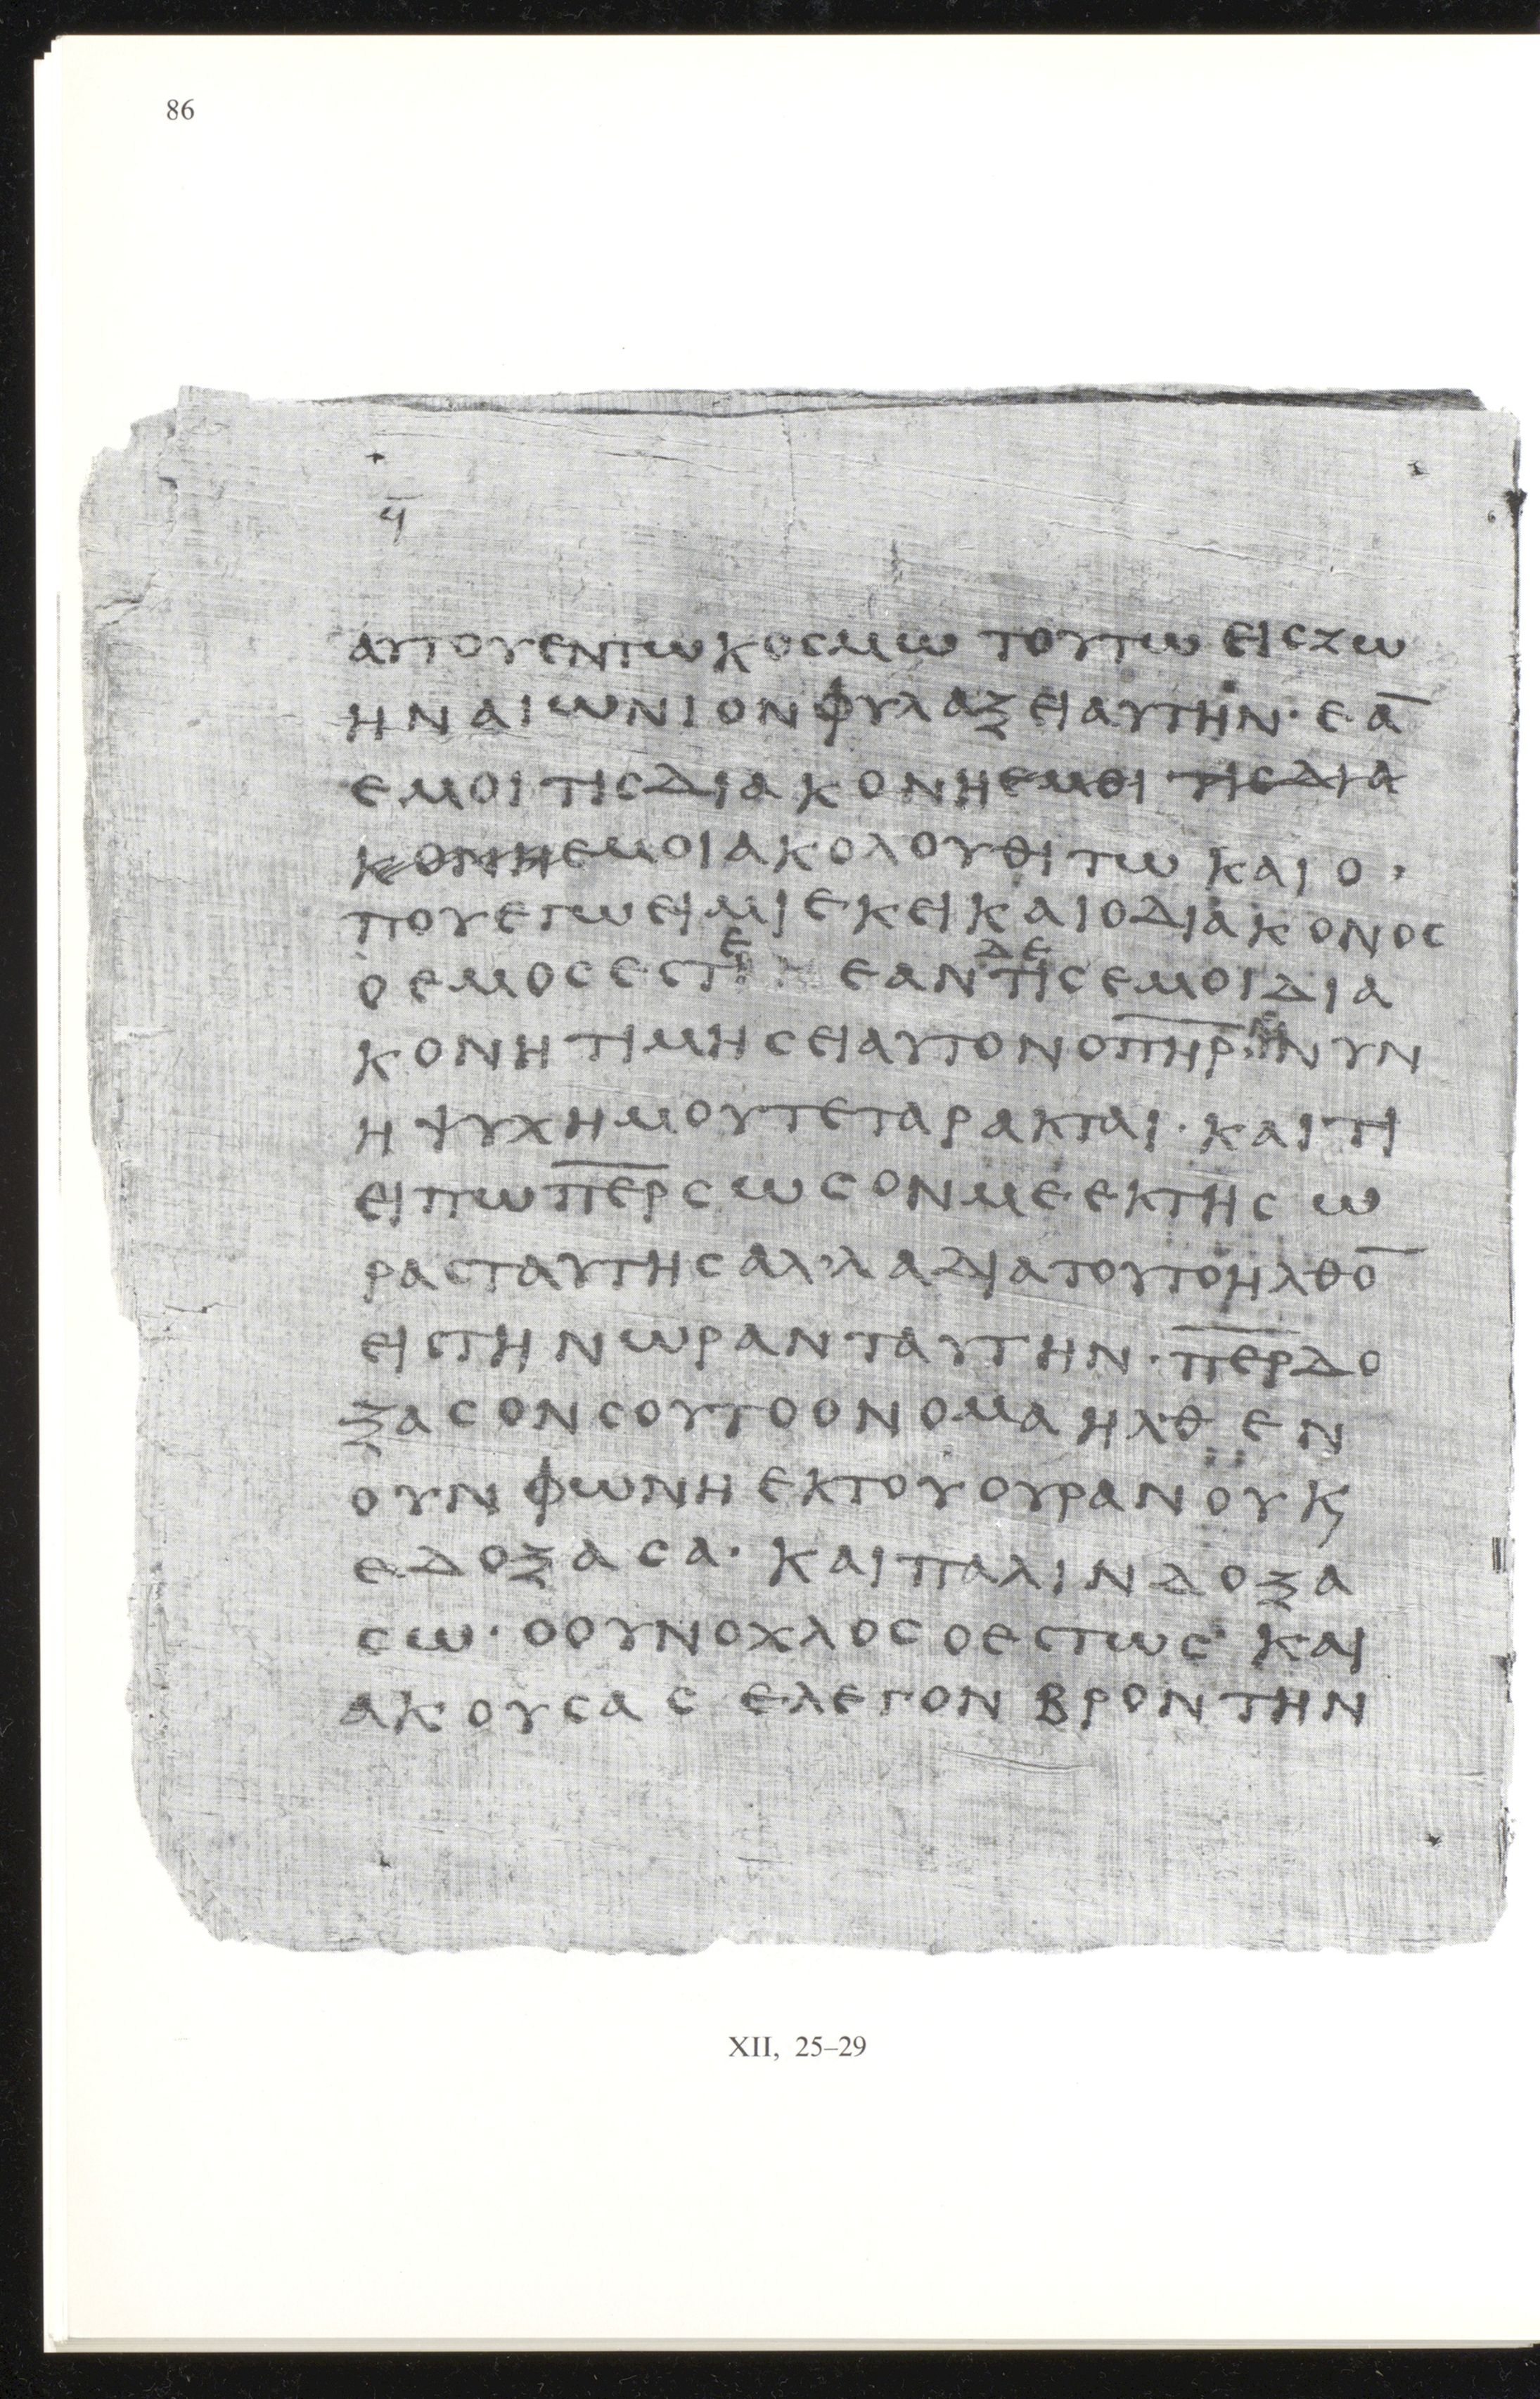 86
ϥ̅
ΑΥΤΟΥΕΝΤΩΚΟΣΜΩ ΤΟΥΤΩ ΕΙΣΖΩ
ΗΝΑΙΩΝΙΟΝΦΥΛΑΞΕΙΑΥΤΗΝ· ΕΑ̅
ΕΜΟΙΤΙΣΔΙΑΚΟΝΗΕΜΟΙ ΤΙΣΔΙΑ
ΚΟΝΗΕΜΟΙΑΚΟΛΟΥΘΙΤΩ ΚΑΙΟ·
ΠΟΥΕΓΩΕΙΜΙΕΚΕΙΚΑΙΟΔΙΑΚΟΝΟΣ
ΟΕΜΟΣΕΣΤΕ ΕΑΝΔΕΤΙΣΕΜΟΙΔΙΑ
ΚΟΝΗΤΙΜΗΣΕΙΑΥΤΟΝΟΠ̅Η̅Ρ̅·ΝΥΝ
ΗΨΥΧΗΜΟΥΤΕΤΑΡΑΚΤΑΙ·ΚΑΙΤΙ
ΕΙΠΩΠ̅Ε̅Ρ̅ΣΩΣΟΝΜΕΕΚΤΗΣΩ
ΡΑΣΤΑΥΤΗΣΑΛ’ΛΑΔΙΑΤΟΥΤΟΗΛΘΟ̅
ΕΙΣΤΗΝΩΡΑΝΤΑΥΤΗΝ·Π̅Ε̅Ρ̅ΔΟ
ΞΑΣΟΝΣΟΥΤΟΟΝΟΜΑΗΛΘΕΝ
ΟΥΝΦΩΝΗΕΚΤΟΥΟΥΡΑΝΟΥΚ
ΕΔΟΞΑΣΑ·ΚΑΙΠΑΛΙΝΔΟΞΑ
ΣΩ·ΟΟΥΝΟΧΛΟΣΟΕΣΤΩΣ ΚΑΙ
ΑΚΟΥΣΑΣ ΕΛΕΓΟΝ ΒΡΟΝΤΗΝ
XII, 25–29